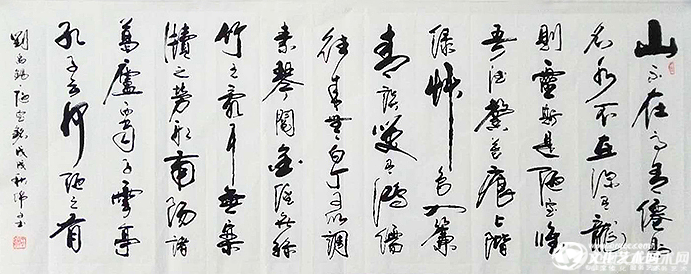 山不在高有僊則
名水不在深有龍
則靈斯是陋室惟
吾德馨苔痕上階
綠艸色入簾
青談笑有鴻儒
往来無白丁可以調
素琴閱金經無絲
竹之亂耳無案
牘之勞形南陽諸
葛廬西蜀子雲亭
孔子云何陋之有
劉禹錫陋室銘戊戌秋